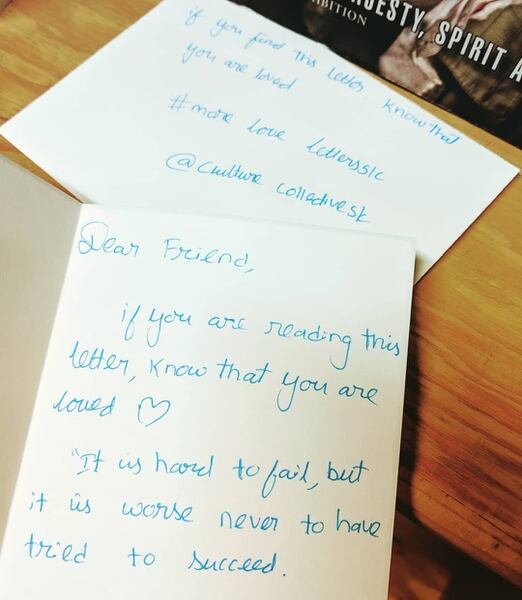 UESTY, SPIRIT A
IBITION
if you find this letter, know that
you are loved
#more love lettersslc
@culture collectivesk
Dear Friend,
if you are reading this
letter, know that you are
loved ♡
"It is hard to fail, but
it is worse never to have
tried to succeed.